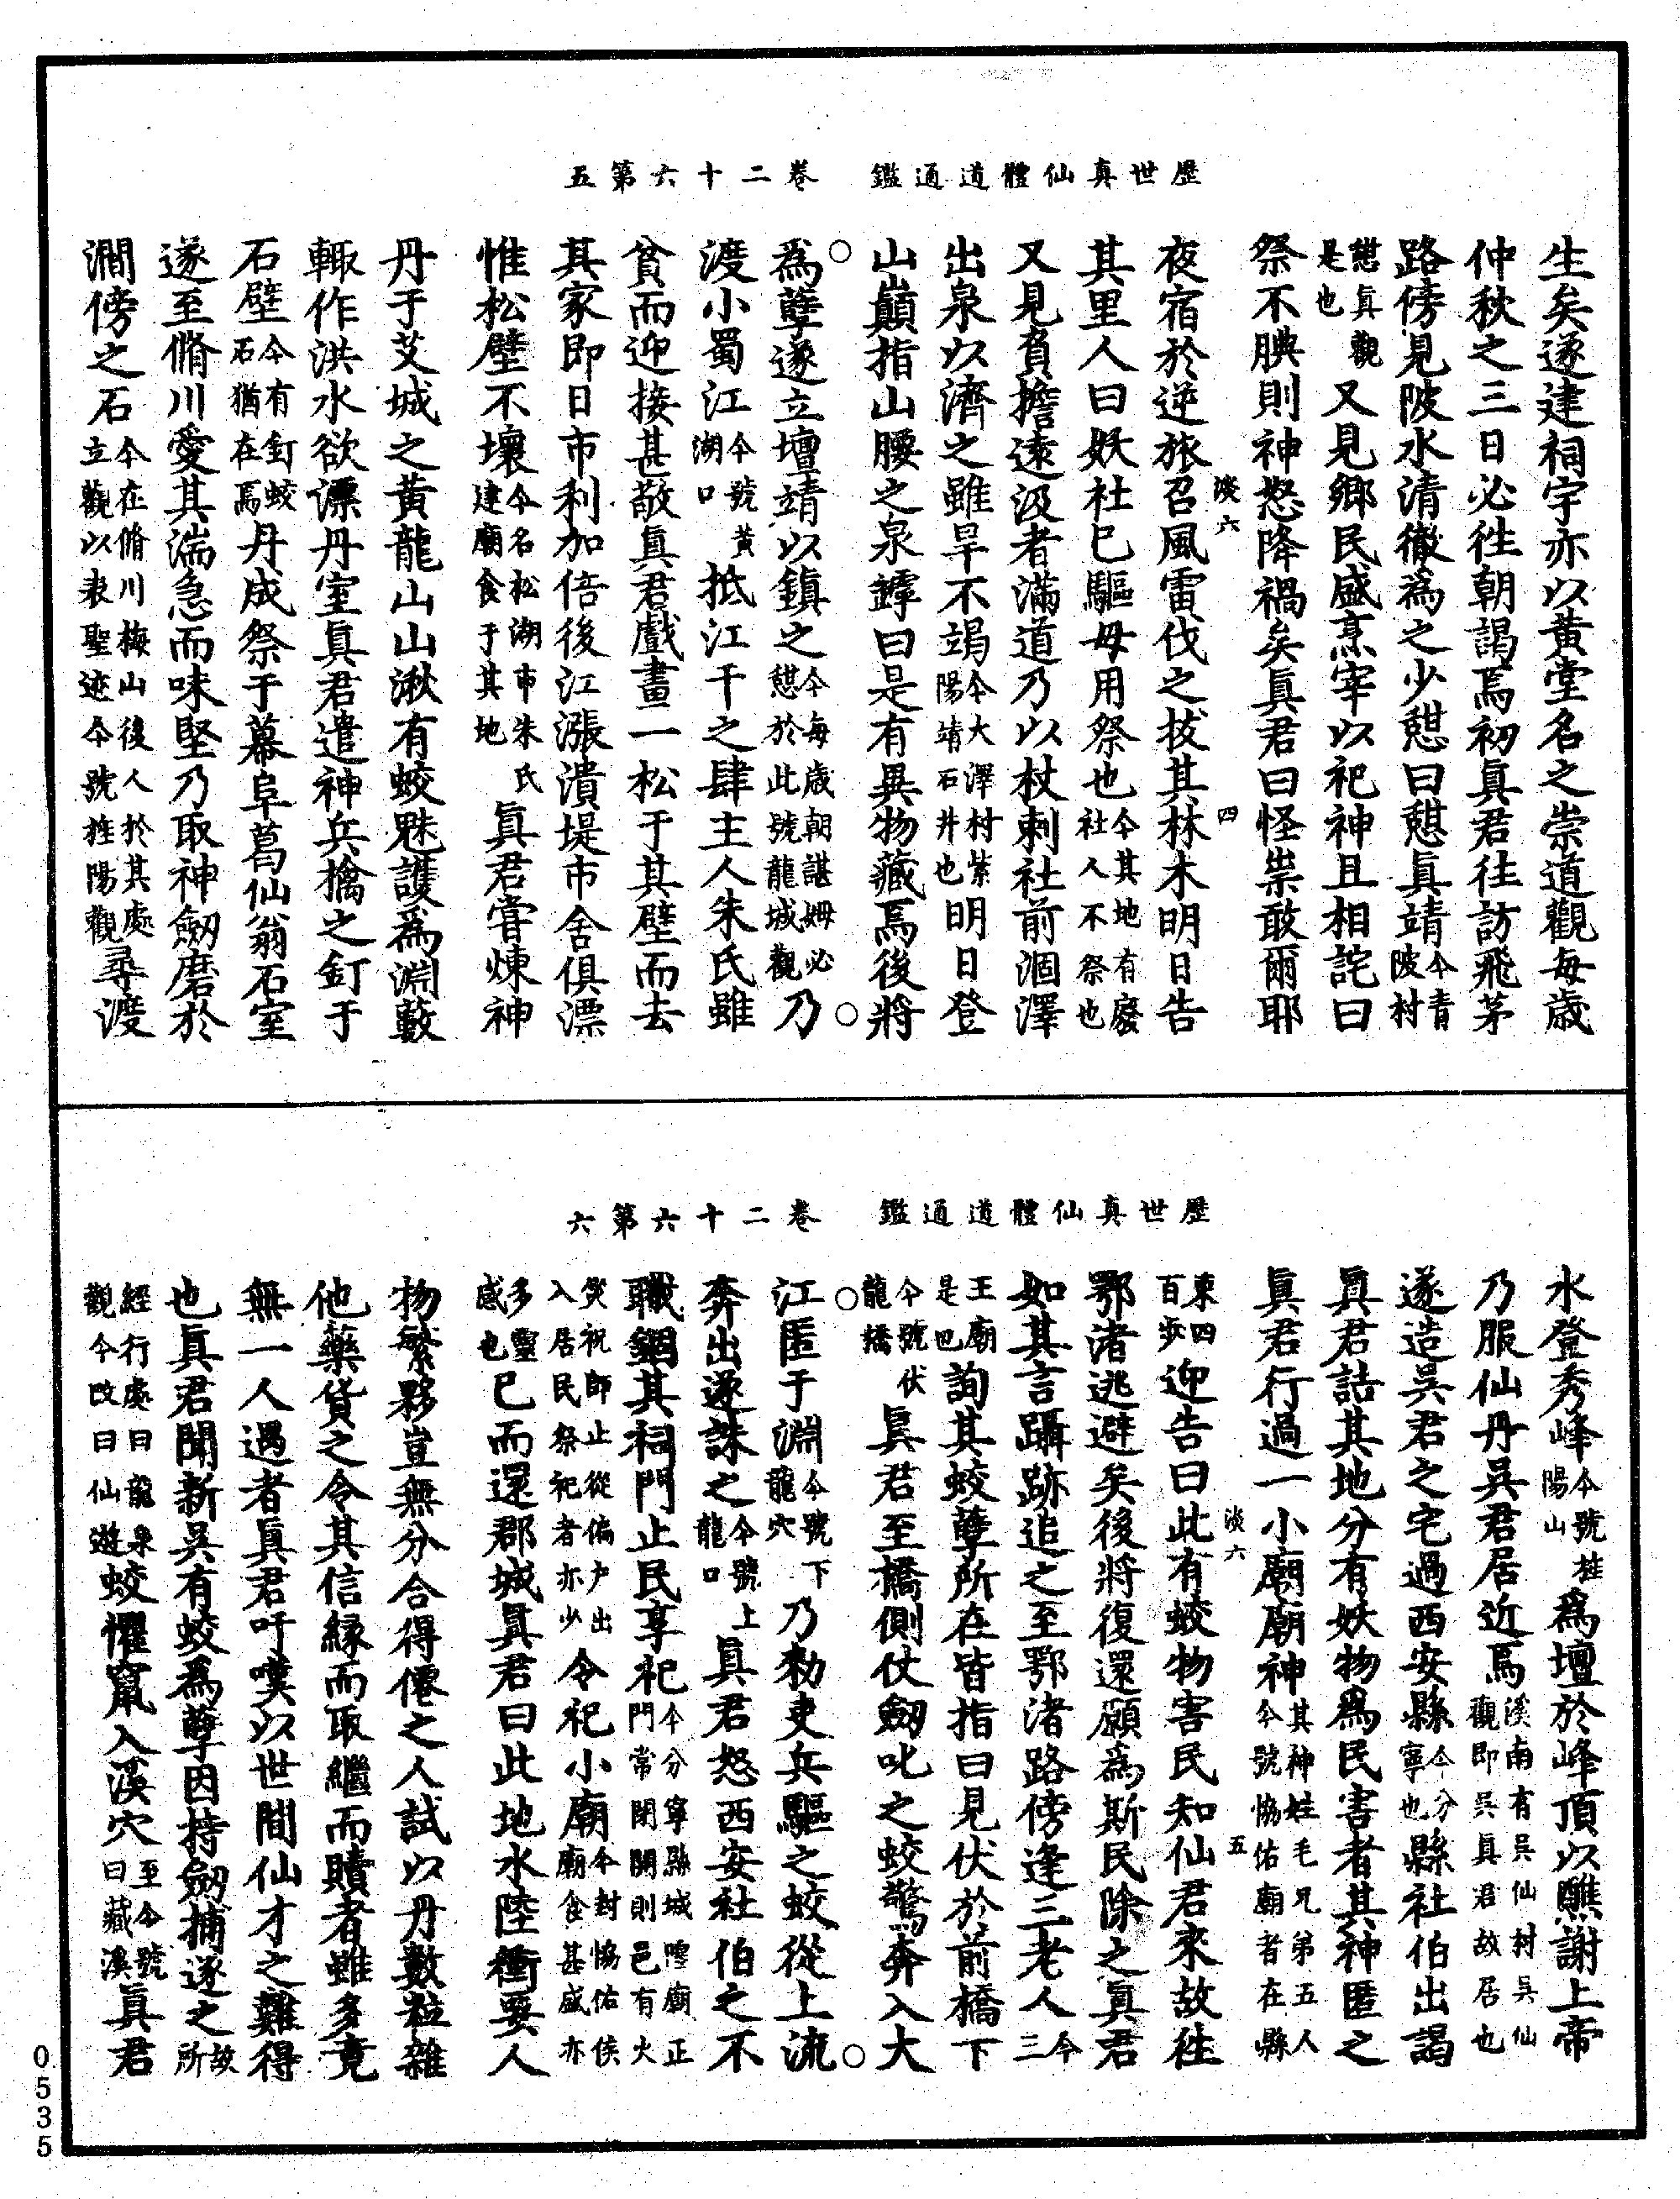 歷世真仙體道通鑑　卷二十六第五
生矣遂建祠宇亦以黃堂名之崇道觀每歲
仲秋之三日必徃朝謁焉初真君往訪飛茅
路傍見陂水清徹為之少憇曰憇真靖今青陂村
憇真觀是也又見鄉民盛烹宰以祀神且相詫曰
祭不腆則神怒降禍矣真君曰怪祟敢爾耶
淡六　四
夜宿於逆旅召風雷伐之拔其林木明日告
其里人曰妖社已驅毋用祭也今其地有廢社人不祭也
又見負擔遠汲者滿道乃以杖刺社前涸澤
出泉以濟之雖旱不竭今大澤村紫陽靖石井也明日登
山巔指山腰之泉罅曰是有異物藏焉後將
為孽遂立壇靖以鎮之今每歲朝諶姆必憇於此號龍城觀乃
渡小蜀江今號黃湖口抵江干之肆主人朱氏雖
貧而迎接甚敬真君戲畫一松于其壁而去
其家即日市利加倍後江漲潰堤市舍俱漂
惟松壁不壞今名松湖市朱氏建廟食于其地真君嘗煉神
丹于艾城之黃龍山山湫有蛟魅護為淵藪
輙作洪水欲漂丹室真君遣神兵擒之釘于
石壁今有釘蛟石猶在焉丹成祭于幕阜葛仙翁石室
遂至脩川愛其湍急而味堅乃取神劒磨於
澗傍之石今在脩川梅山後人於其處立觀以表聖迹今號旌陽觀尋渡
歷世真仙體道通鑑　卷二十六第六
水登秀峰今號旌陽山為壇於峰頂以醮謝上帝
乃服仙丹吳君居近焉溪南有吳仙村吳仙觀即吳真君故居也
遂造吳君之宅過西安縣今分寧也縣社伯出謁
真君詰其地分有妖物為民害者其神匿之
真君行過一小廟廟神其神姓毛兄弟五人今號協佑廟者在縣
淡六　五
東四百步迎告曰此有蛟物害民知仙君來故徃
鄂渚逃避矣後將復還願為斯民除之真君
如其言躡跡追之至鄂渚路傍逢三老人今三
王廟是也詢其蛟孽所在皆指曰見伏於前橋下
今號伏龍橋真君至橋側仗劒叱之蛟驚奔入大
江匿于淵今號下龍穴乃勑吏兵驅之蛟從上流
奔出遂誅之今號上龍口真君怒西安社伯之不
職錮其祠門止民享祀今分寧縣城隍廟正門常閉開則邑有火
災祝師止從偏戶出入居民祭祀者亦少令祀小廟今封協佑侯廟食甚盛亦
多靈感也已而還郡城真君曰此地水陸衝要人
物繁夥豈無分合得僊之人試以丹數粒雜
他藥貨之令其信緣而取繼而贖者雖多竟
無一人遇者真君吁嘆以世間仙才之難得
也真君聞新吳有蛟為孽因持劒捕逐之故所
經行處曰龍泉觀今改曰仙遊蛟懼竄入溪穴至今號曰藏溪真君
0535